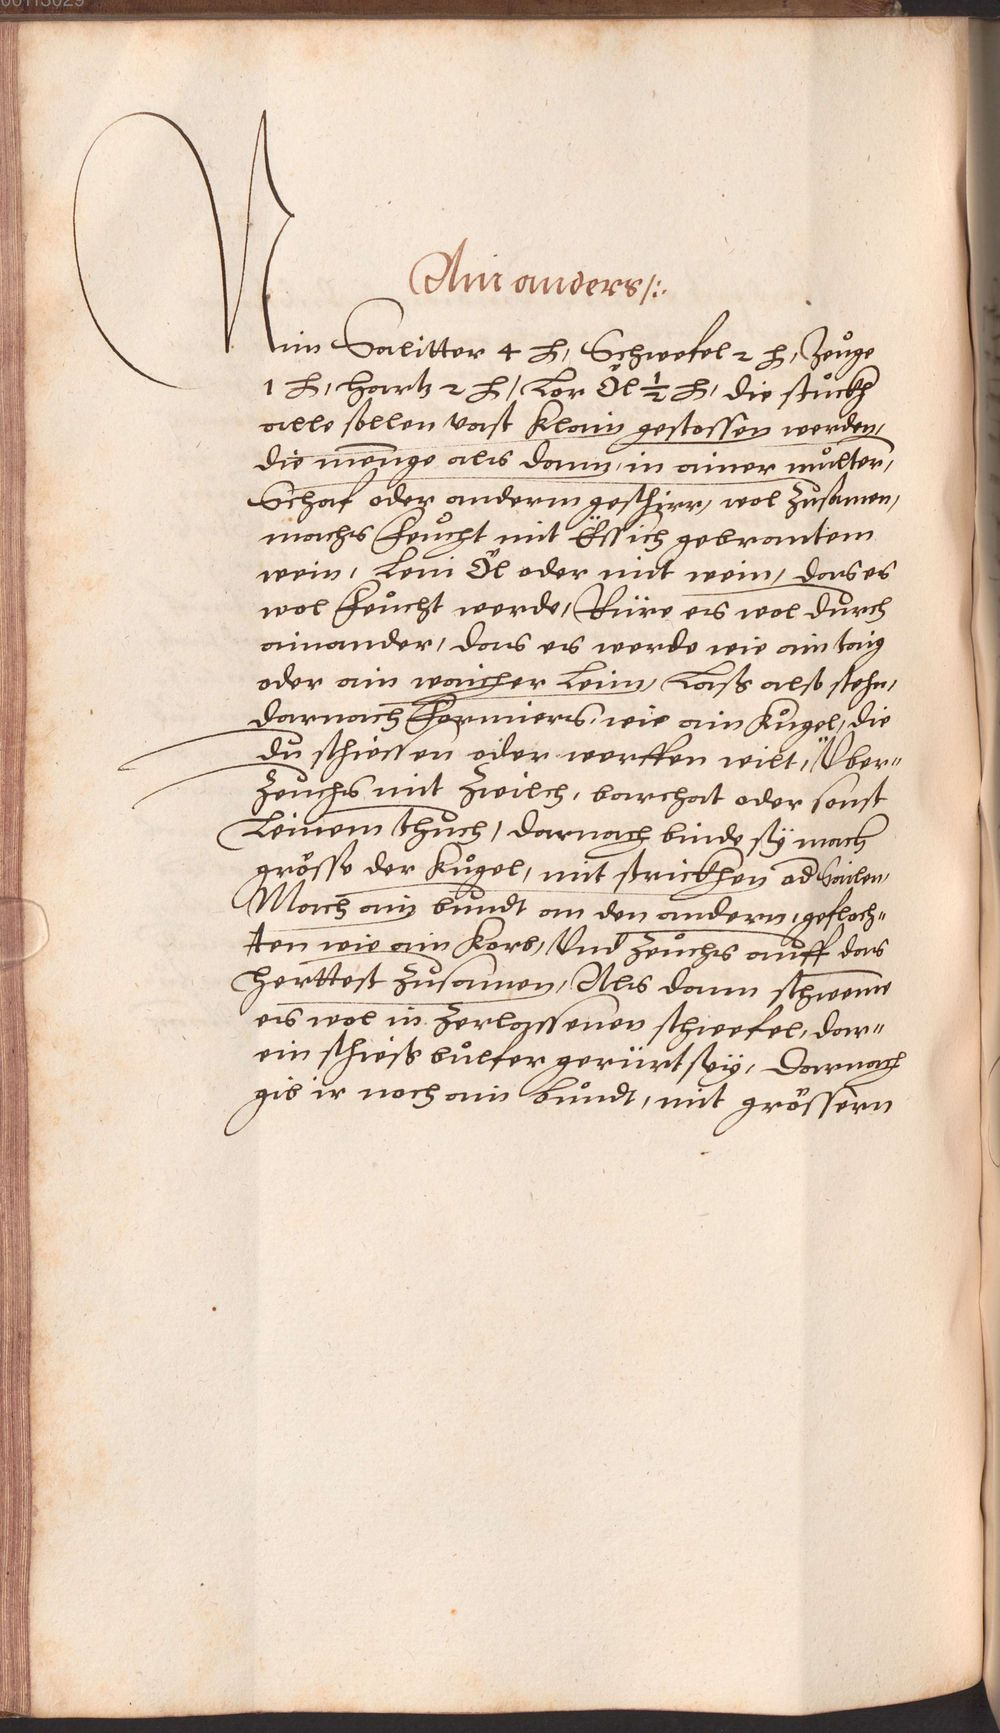 00113029
Ain anders /:.
Nim Salitter 4 ℔, Schwefel 2 ℔, Zeuge
1 ℔, hartz 2 ℔ / Lor Öl ½ ℔, die stuckh
alle sollen vast klain gestossen werden,
die menge als dann, in ainer můlter,
Schaf oder anderm geschirr, wol zůsamen,
machs feůcht mit Essich gebrantem
wein, Lein Öl oder mit wein, das es
wol feůcht werde, Rüre es wol důrch
ainander, das es werde wie ain taig
oder ain waicher Leim, Lass also stehn,
darnach formiers, wie ain Kůgel, die
du schiessen oder werffen wilt, Über„
zeuchs mit zwilch, barchat oder sonst
Leinem thůch, darnach binde sÿ nach
grösse der Kůgel, mit strickhen od Sailen,
Mach ain bundt an den andern, gefloch„
ten wie ain Korb, Und zeůchs auff das
herttest zůsamen, Als dann schweme
es wol in zerlassenen schwefel, dar„
ein schiess bůlfer gerürt seÿ, Darnach
gib ir noch ain bůndt, mit grössern